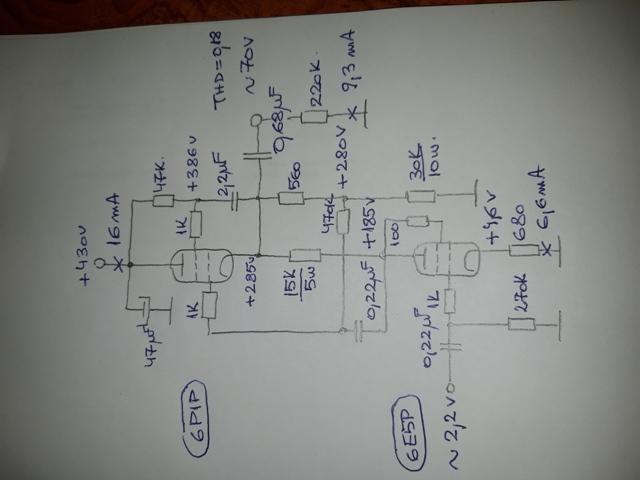 +430V
16 mA
47K.
+386V
THD=0,18
~70V
47µF
1K
2,2µF
0,68µF
220K.
9,3 mA
1K
+285V
560
+280V
470K
15K
5W
+185V
30K
10W.
6P1P
0,22µF
100
+4,6V
680
6,6mA
6E5P
0,22µF
1K
270K
~2,2V